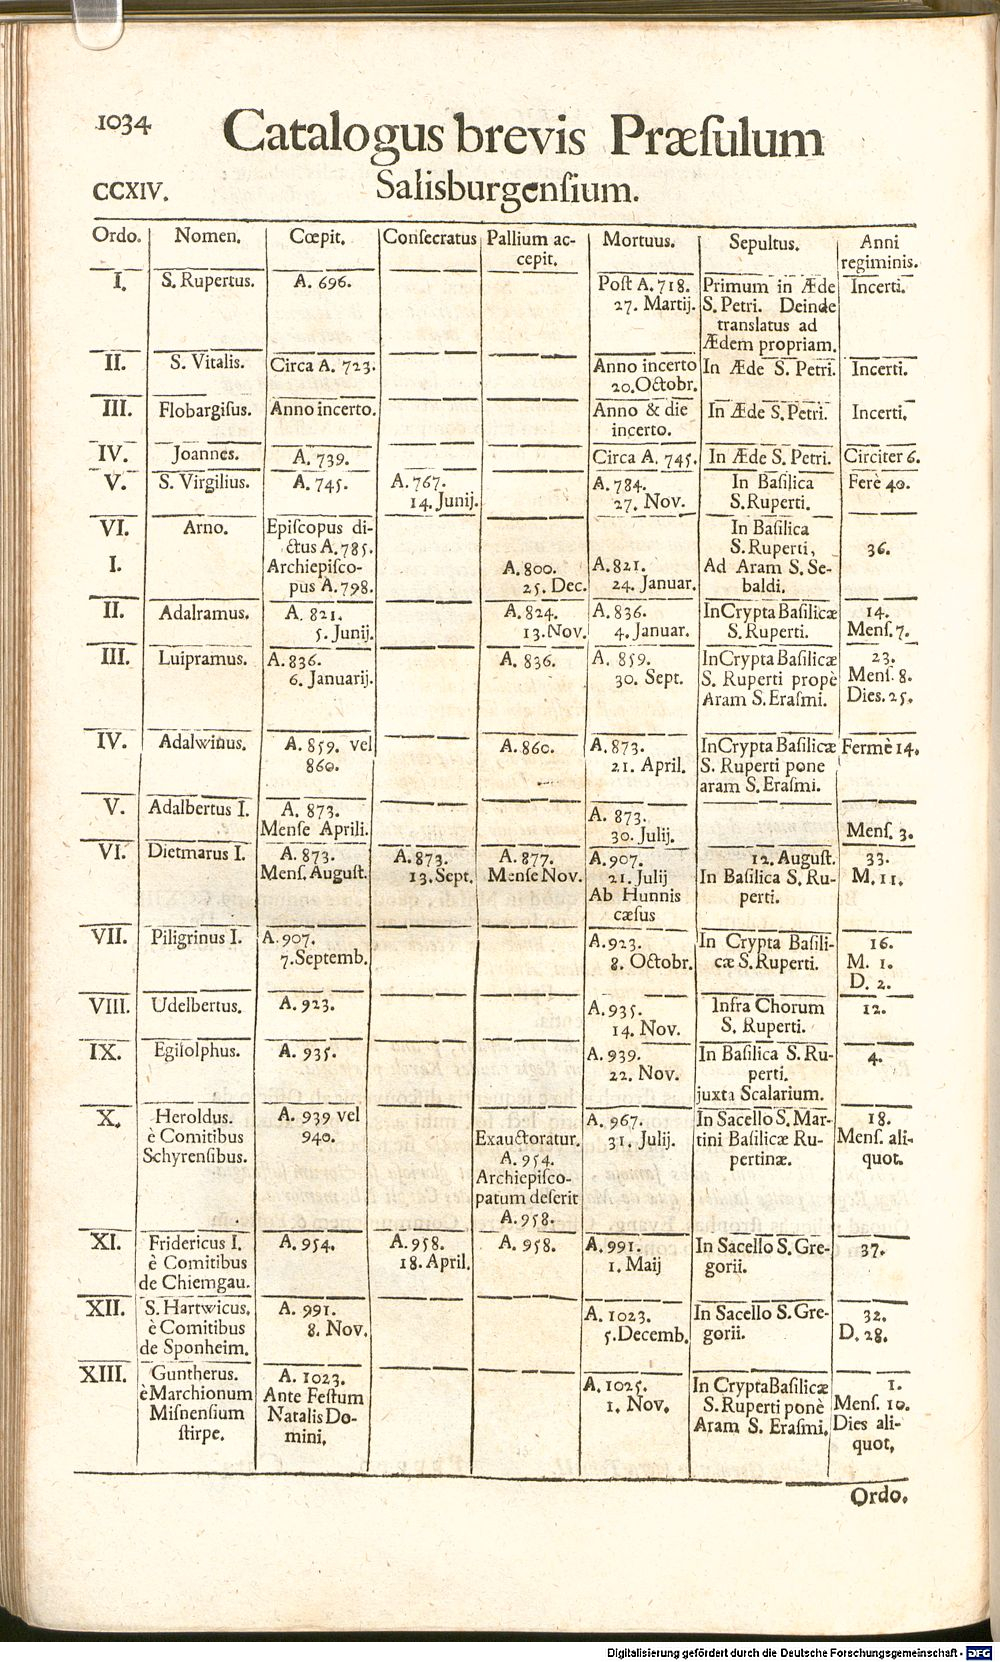 1034
Catalogus brevis Præſulum
CCXIV.
Salisburgenſium.
Ordo. Nomen. Cœpit. Conſecratus Pallium ac- Mortuus. Sepultus. Anni
cepit. regiminis.
I. S. Rupertus. A. 696. Poſt A. 718. Primum in Æde Incerti.
27. Martij. S. Petri. Deinde
translatus ad
Ædem propriam.
II. S. Vitalis. Circa A. 723. Anno incerto In Æde S. Petri. Incerti.
20. Octobr.
III. Flobargiſus. Anno incerto. Anno & die In Æde S. Petri. Incerti.
incerto.
IV. Joannes. A. 739. Circa A. 745. In Æde S. Petri. Circiter 6.
V. S. Virgilius. A. 745. A. 767. A. 784. In Baſilica Ferè 40.
14. Junij. 27. Nov. S. Ruperti.
VI. Arno. Epiſcopus di- In Baſilica
ctus A. 785. S. Ruperti, 36.
I. Archiepiſco- A. 800. A. 821. Ad Aram S. Se-
pus A. 798. 25. Dec. 24. Januar. baldi.
II. Adalramus. A. 821. A. 824. A. 836. In Crypta Baſilicæ 14.
5. Junij. 13. Nov. 4. Januar. S. Ruperti. Menſ. 7.
III. Luipramus. A. 836. A. 836. A. 859. In Crypta Baſilicæ 23.
6. Januarij. 30. Sept. S. Ruperti propè Menſ. 8.
Aram S. Eraſmi. Dies. 25.
IV. Adalwinus. A. 859. vel A. 860. A. 873. In Crypta Baſilicæ Fermè 14.
860. 21. April. S. Ruperti pone
aram S. Eraſmi.
V. Adalbertus I. A. 873. A. 873.
Menſe Aprili. 30. Julij. Menſ. 3.
VI. Dietmarus I. A. 873. A. 873. A. 877. A. 907. 12. Auguſt. 33.
Menſ. Auguſt. 13. Sept. Menſe Nov. 21. Julij In Baſilica S. Ru- M. 11.
Ab Hunnis perti.
cæſus
VII. Piligrinus I. A. 907. A. 923. In Crypta Baſili- 16.
7. Septemb. 8. Octobr. cæ S. Ruperti. M. 1.
D. 2.
VIII. Udelbertus. A. 923. A. 935. Infra Chorum 12.
14. Nov. S. Ruperti.
IX. Egilolphus. A. 935. A. 939. In Baſilica S. Ru- 4.
22. Nov. perti.
juxta Scalarium.
X. Heroldus. A. 939 vel A. 967. In Sacello S. Mar- 18.
è Comitibus 940. Exauctoratur. 31. Julij. tini Baſilicæ Ru- Menſ. ali-
Schyrenſibus. A. 954. pertinæ. quot.
Archiepiſco-
patum deſerit
A. 958.
XI. Fridericus I. A. 954. A. 958. A. 958. A. 991. In Sacello S. Gre- 37.
è Comitibus 18. April. 1. Maij gorii.
de Chiemgau.
XII. S. Hartwicus. A. 991. A. 1023. In Sacello S. Gre- 32.
è Comitibus 8. Nov. 5. Decemb. gorii. D. 28.
de Sponheim.
XIII. Guntherus. A. 1023. A. 1025. In Crypta Baſilicæ 1.
è Marchionum Ante Feſtum 1. Nov. S. Ruperti ponè Menſ. 10.
Miſnenſium Natalis Do- Aram S. Eraſmi. Dies ali-
ſtirpe. mini. quot.
Ordo.
Digitalisierung gefördert durch die Deutsche Forschungsgemeinschaft - DFG